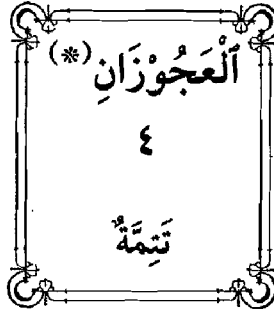 اَلْعَجُوْزَانِ (*)
٤
تَتِمَّةٌ